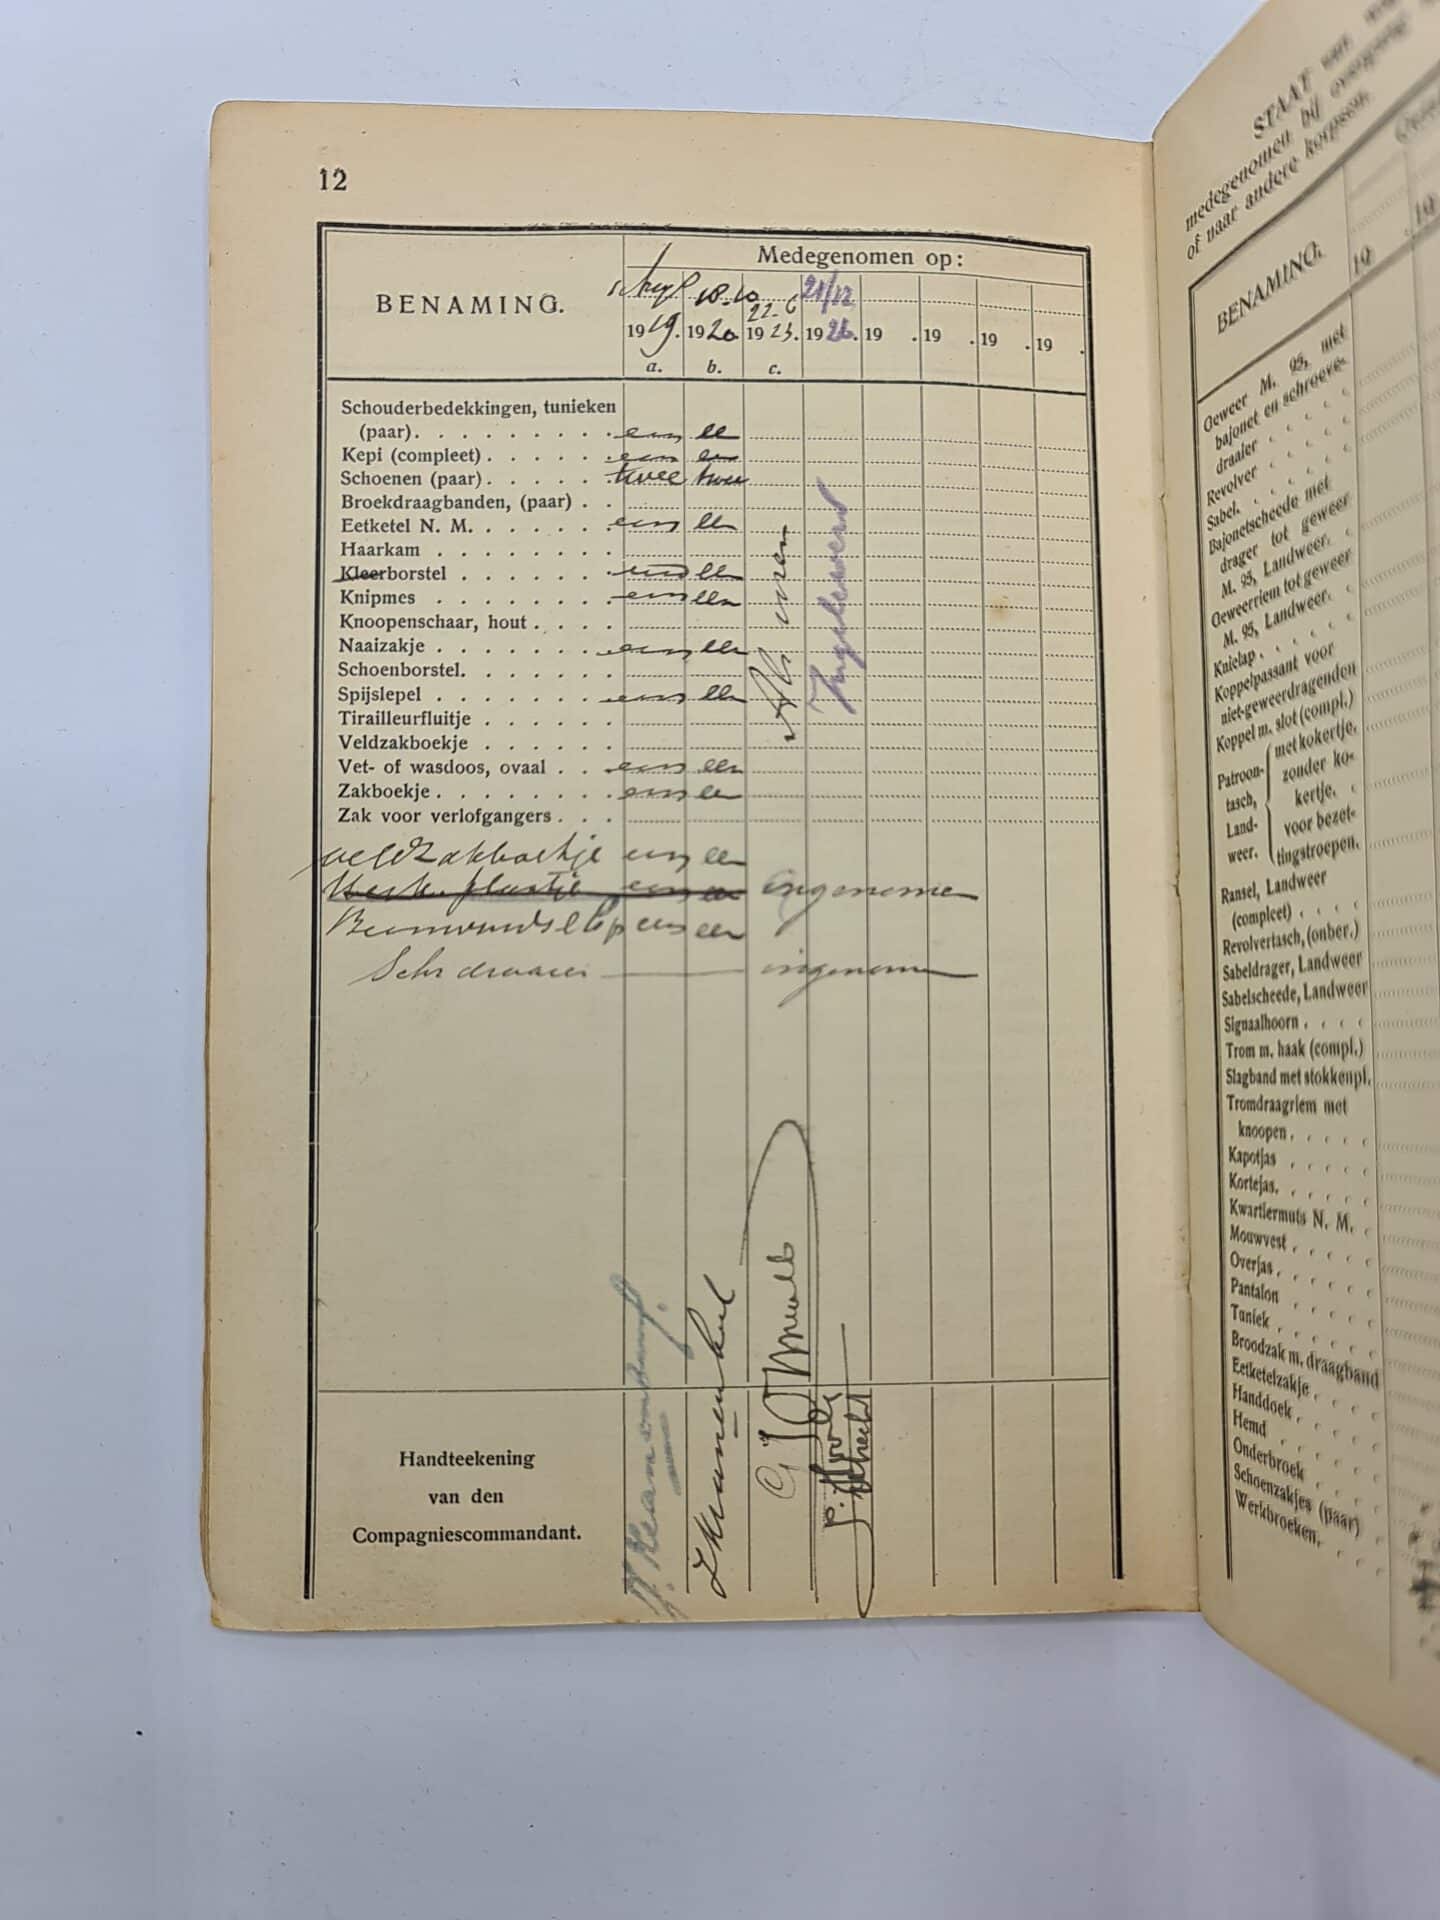 12
BENAMING.
Medegenomen op:
18.10 22-6 21/12
1919. 1920 1923. 1926. 19 . 19 . 19 . 19 .
a. b. c.
Schouderbedekkingen, tunieken
(paar). . . . . . . . . een een
Kepi (compleet) . . . . . een een
Schoenen (paar) . . . . . twee twee
Broekdraagbanden, (paar) . .
Eetketel N. M. . . . . . een een
Haarkam . . . . . . . .
Kleerborstel . . . . . . een een
Knipmes . . . . . . . . een een
Knoopenschaar, hout . . . .
Naaizakje . . . . . . . een een
Schoenborstel. . . . . . .
Spijslepel . . . . . . . een een
Tirailleurfluitje . . . . . .
Veldzakboekje . . . . . .
Vet- of wasdoos, ovaal . . . een een
Zakboekje . . . . . . . . een een
Zak voor verlofgangers . . .
Als voren
Ingeleverd
veldzakboekje een een
Herk. plaatje een een ingenomen
een een
Schr draaier ingenomen
Handteekening
van den
Compagniescommandant.
STAAT van
medegenomen bij overgang
of naar andere korpsen.
BENAMING.
19 . 19
Geweer M. 95, met
bajonet en schroeve-
draaier . . . . .
Revolver . . . . .
Sabel. . . . . . .
Bajonetscheede met
drager tot geweer
M. 95, Landweer. .
Geweerriem tot geweer
M. 95, Landweer. .
Knielap . . . . .
Koppelpassant voor
niet-geweerdragenden
Koppel m. slot (compl.)
Patroon-
tasch,
Land-
weer.
met kokertje.
zonder ko-
kertje. .
voor bezet-
tingstroepen.
Ransel, Landweer
(compleet) . . . .
Revolvertasch, (onber.)
Sabeldrager, Landweer
Sabelscheede, Landweer
Signaalhoorn . . . .
Trom m. haak (compl.)
Slagband met stokkenpl.
Tromdraagriem met
knoopen . . . . .
Kapotjas . . . . .
Kortejas. . . . . .
Kwartiermuts N. M. .
Mouwvest . . . . .
Overjas. . . . . .
Pantalon . . . . .
Tuniek . . . . . .
Broodzak m. draagband
Eetketelzakje . . . .
Handdoek . . . . .
Hemd . . . . . .
Onderbroek . . . .
Schoenzakjes (paar)
Werkbroeken. . . .